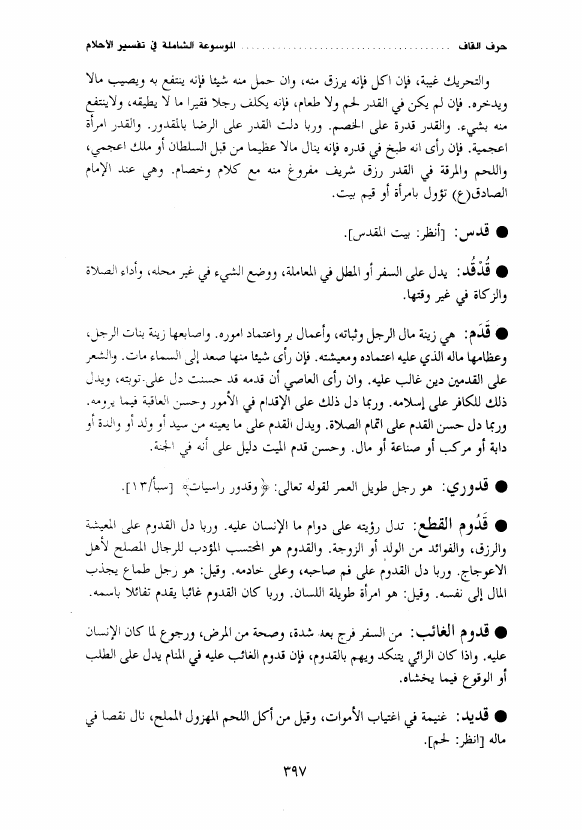 حرف القاف ........................................ الموسوعة الشاملة في تفسير الأحلام
والتحريك غيبة، فإن اكل فإنه يرزق منه، وان حمل منه شيئا فإنه ينتفع به ويصيب مالا
ويدخره. فإن لم يكن في القدر لحم ولا طعام، فإنه يكلف رجلا فقيرا ما لا يطيقه، ولاينتفع
منه بشيء. والقدر قدرة على الخصم. وربا دلت القدر على الرضا بالمقدور. والقدر امرأة
اعجمية. فإن رأى انه طبخ في قدره فإنه ينال مالا عظيما من قبل السلطان أو ملك اعجمي،
واللحم والمرقة في القدر رزق شريف مفروغ منه مع كلام وخصام. وهي عند الإمام
الصادق(ع) تؤول بامرأة أو قيم بيت.
● قدس: [أنظر: بيت المقدس].
● قُدْقُد: يدل على السفر أو المطل في المعاملة، ووضع الشيء في غير محله، وأداء الصلاة
والزكاة في غير وقتها.
● قَدَم: هي زينة مال الرجل وثباته، وأعمال بر واعتماد اموره. واصابعها زينة بنات الرجل،
وعظامها ماله الذي عليه اعتماده ومعيشته. فإن رأى شيئا منها صعد إلى السماء مات. والشعر
على القدمين دين غالب عليه. وان رأى العاصي أن قدمه قد حسنت دل على توبته، ويدل
ذلك للكافر على إسلامه. وربما دل ذلك على الإقدام في الأمور وحسن العاقبة فيما يرومه.
وربما دل حسن القدم على اتمام الصلاة. ويدل القدم على ما يعينه من سيد أو ولد أو والدة أو
دابة أو مركب أو صناعة أو مال. وحسن قدم الميت دليل على أنه في الجنة.
● قدوري: هو رجل طويل العمر لقوله تعالى: ﴿وقدور راسيات﴾ [سبأ/١٣].
● قَدُوم القطع: تدل رؤيته على دوام ما الإنسان عليه. وربا دل القدوم على المعيشة
والرزق، والفوائد من الولد أو الزوجة. والقدوم هو المحتسب المؤدب للرجال المصلح لأهل
الاعوجاج. وربا دل القدوم على فم صاحبه، وعلى خادمه. وقيل: هو رجل طماع يجذب
المال إلى نفسه. وقيل: هو امرأة طويلة اللسان. وربا كان القدوم غائبا يقدم تفائلا باسمه.
● قدوم الغائب: من السفر فرج بعد شدة، وصحة من المرض، ورجوع لما كان الإنسان
عليه. واذا كان الرائي يتنكد ويهم بالقدوم، فإن قدوم الغائب عليه في المنام يدل على الطلب
أو الوقوع فيما يخشاه.
● قديد: غنيمة في اغتياب الأموات، وقيل من أكل اللحم المهزول المملح، نال نقصا في
ماله [انظر: لحم].
٣٩٧